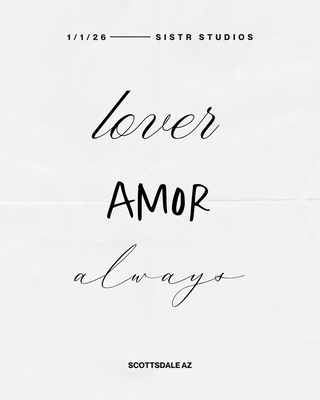 1/1/26 SISTR STUDIOS
lover
AMOR
always
SCOTTSDALE AZ